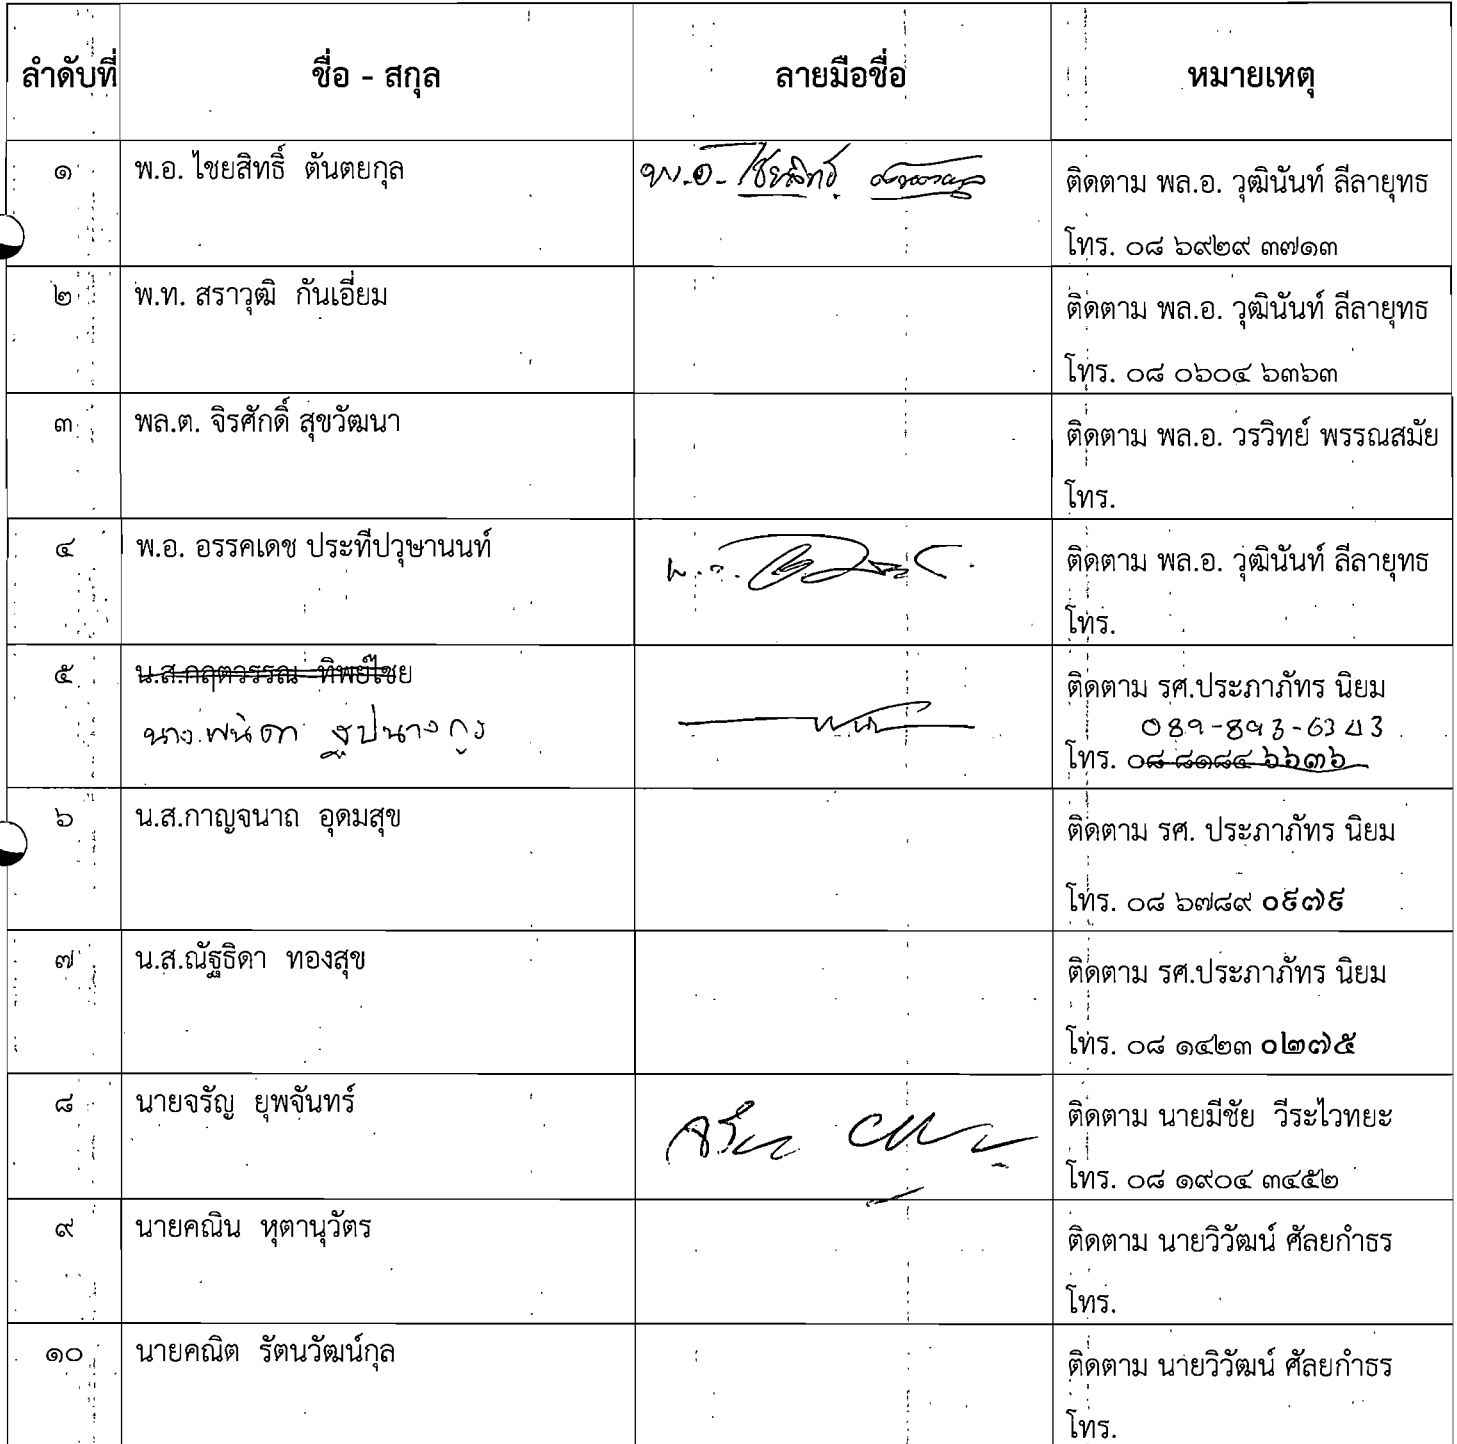 ลำดับที่ ชื่อ - สกุล ลายมือชื่อ หมายเหตุ
๑ พ.อ. ไชยสิทธิ์ ตันตยกุล พ.อ. ไชยสิทธิ์ ติดตาม พล.อ. วุฒินันท์ ลีลายุทธ
โทร. ๐๘ ๖๙๒๙ ๓๗๑๓
๒ พ.ท. สราวุฒิ กันเอี่ยม ติดตาม พล.อ. วุฒินันท์ ลีลายุทธ
โทร. ๐๘ ๐๖๐๔ ๖๓๖๓
๓ พล.ต. จิรศักดิ์ สุขวัฒนา ติดตาม พล.อ. วรวิทย์ พรรณสมัย
โทร.
๔ พ.อ. อรรคเดช ประทีปวุษานนท์ พ.อ. ติดตาม พล.อ. วุฒินันท์ ลีลายุทธ
โทร.
๕ น.ส.กฤตวรรณ ทิพย์ไชย ติดตาม รศ.ประภาภัทร นิยม
นาง.พนิดา ฐปนางกูร 089-893-6343
โทร. ๐๘ ๘๑๘๔ ๖๖๓๖
๖ น.ส.กาญจนาถ อุดมสุข ติดตาม รศ. ประภาภัทร นิยม
โทร. ๐๘ ๖๗๘๙ ๐๙๗๙
๗ น.ส.ณัฐธิดา ทองสุข ติดตาม รศ.ประภาภัทร นิยม
โทร. ๐๘ ๑๔๒๓ ๐๒๗๕
๘ นายจรัญ ยุพจันทร์ จรัญ ติดตาม นายมีชัย วีระไวทยะ
โทร. ๐๘ ๑๙๐๔ ๓๔๕๒
๙ นายคณิน หุตานุวัตร ติดตาม นายวิวัฒน์ ศัลยกำธร
โทร.
๑๐ นายคณิต รัตนวัฒน์กุล ติดตาม นายวิวัฒน์ ศัลยกำธร
โทร.